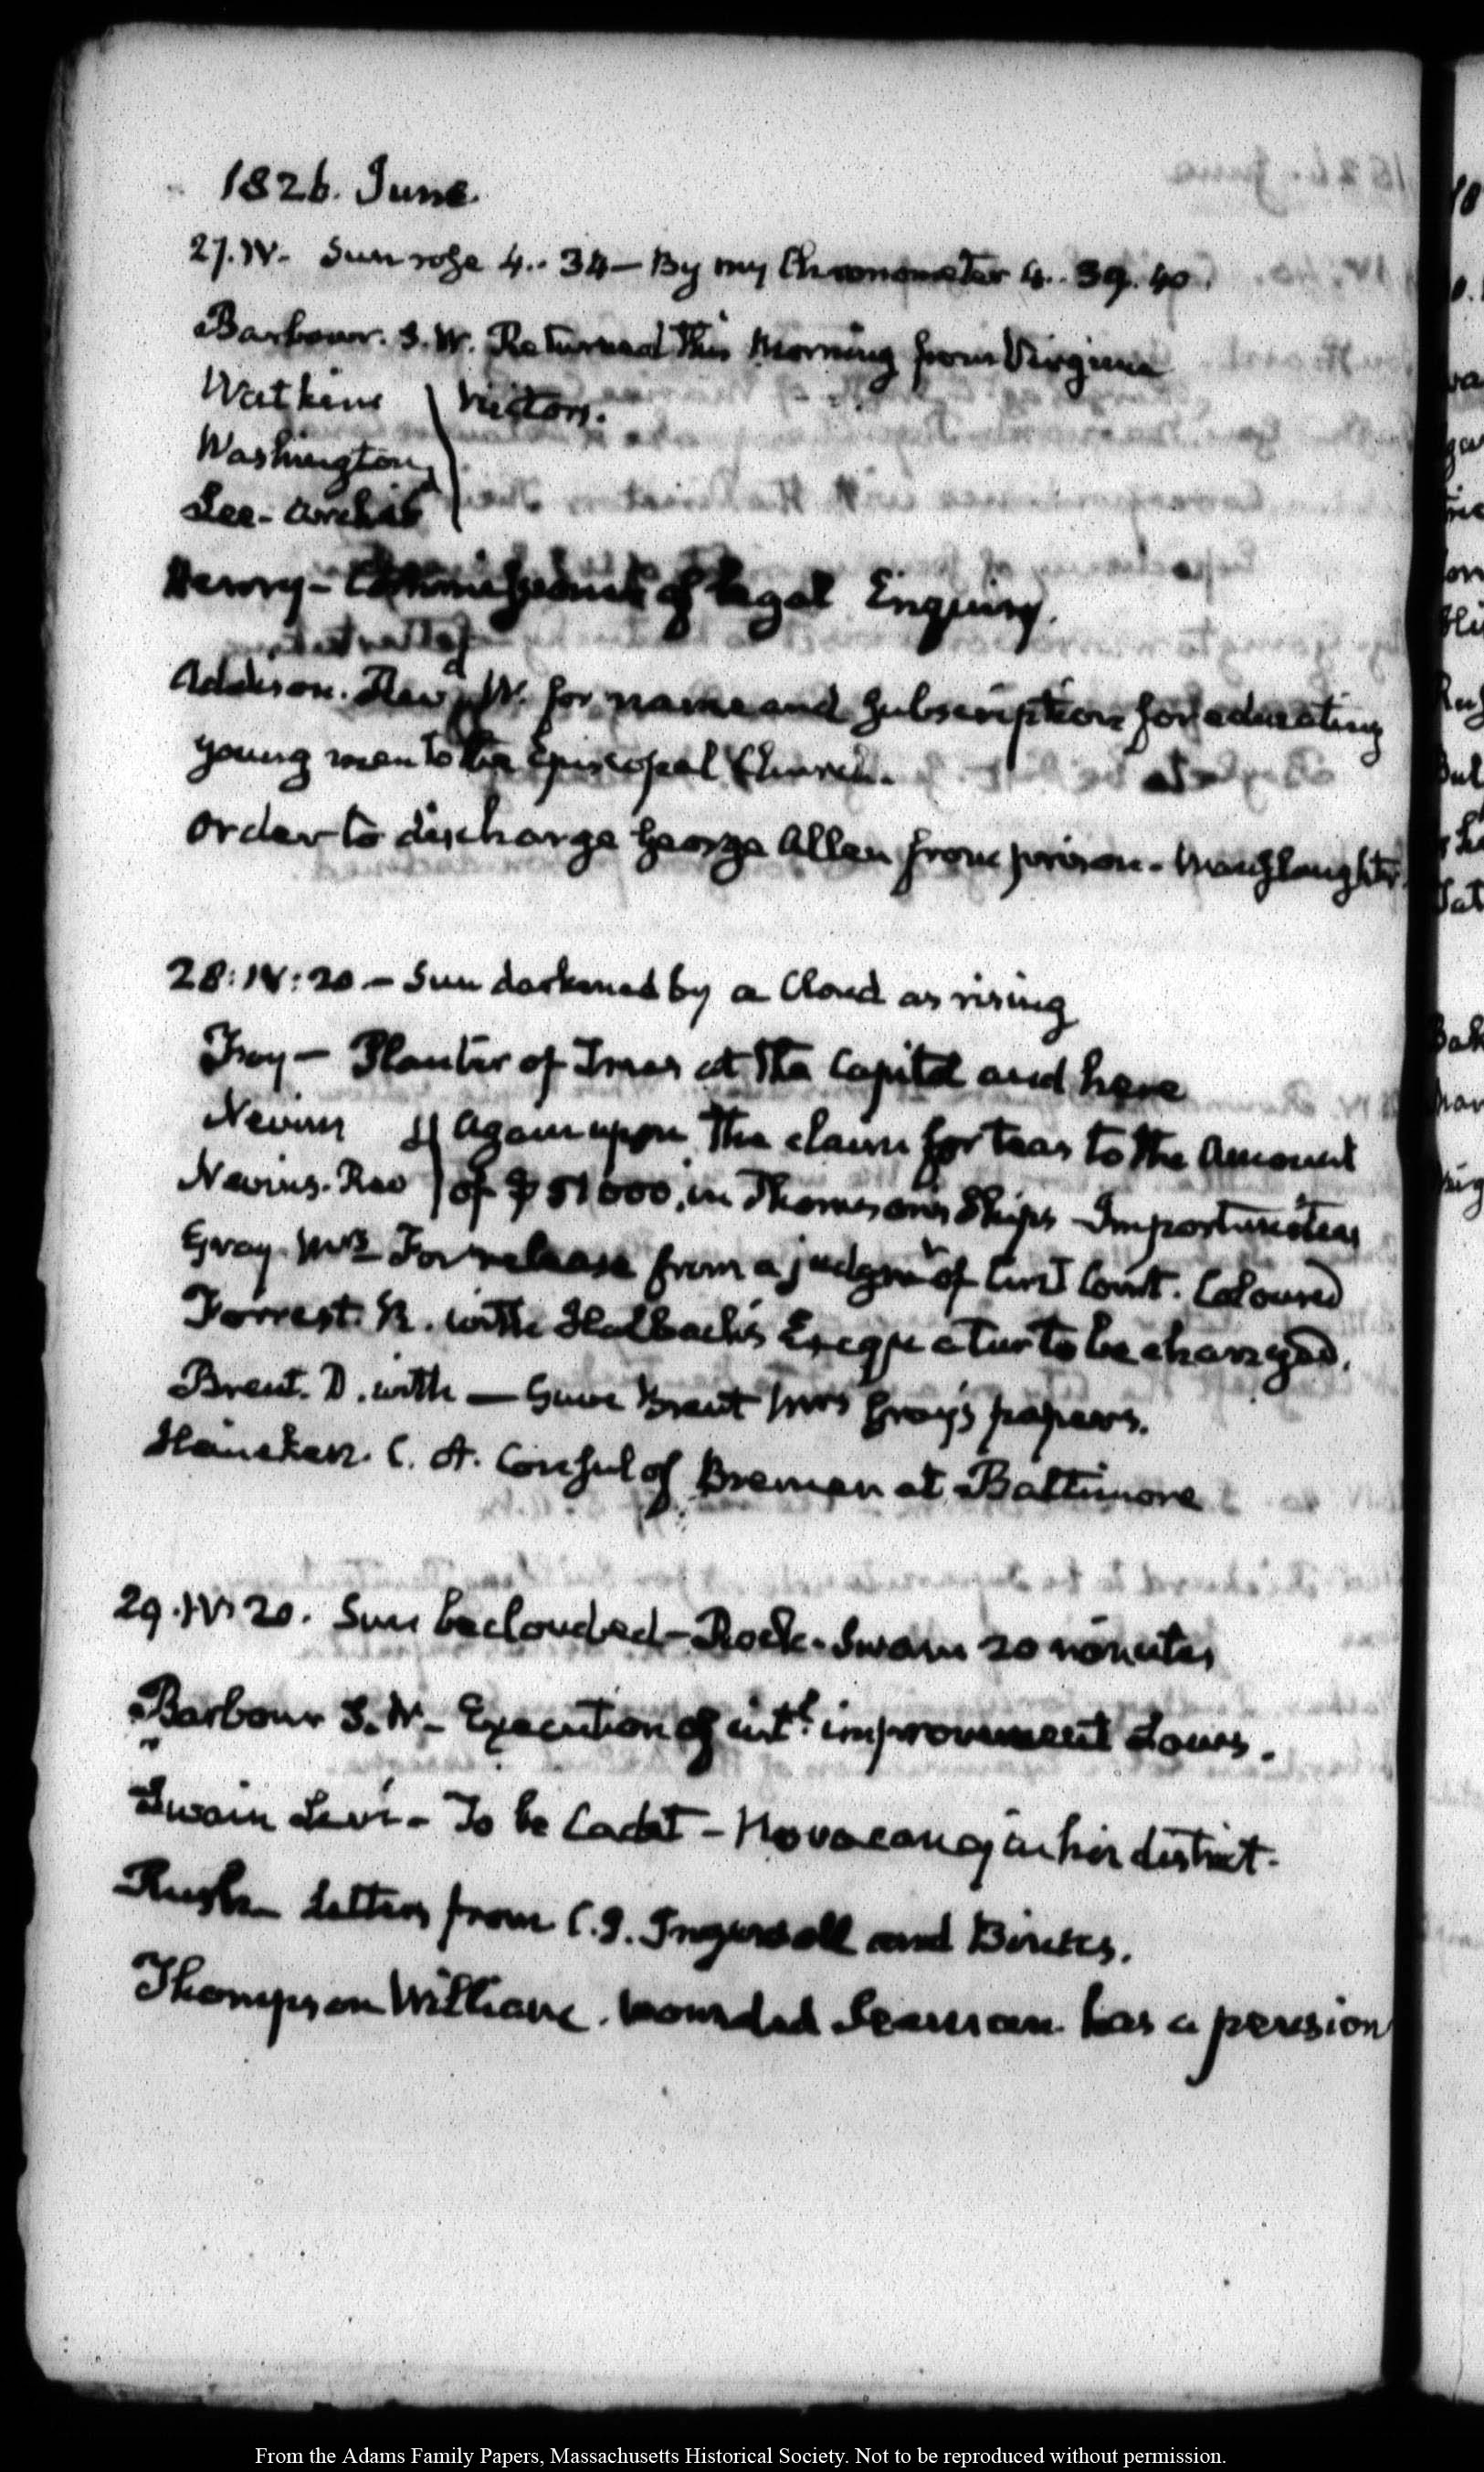 1826. June.
27. IV. Sun rose 4.. 34 — By my Chronometer 4.. 39. 40.
Barbour. S. W. Returned this Morning from Virginia
Watkins } Visitors.
Washington
Lee - Archib
Henry - of legal Enquiry.
Addison. Revd. W. for name and Subscription for educating
young men to the Episcopal Church.
Order to discharge George Allen from prison - Manslaughter.
28: IV: 20. - Sun darkened by a Cloud as rising
Foy - Planter of Trees at the Capitol and here
Nevins } Again upon the claim for teas to the Amount
Nevins. Rev of $51000, in Thomson's Ships - Importunities
Gray. Mrs For release from a judgmt of Cirt Court. Coloured
Forrest. R. with Halbach's Exequatur to be changed.
Brent. D. with — Gave Brent Mrs Gray's papers.
Heineken. C. A. Consul of Bremen at Baltimore
29. IV: 20. Sun beclouded - Rock - Swam 20 minutes
Barbour S. W. - Execution of intl. improvement Laws.
Swain Levi - To be Cadet - No vacancy in his district.
Rush - Letters from C. J. Ingersoll and Binns.
Thompson William. wounded Seaman has a pension
From the Adams Family Papers, Massachusetts Historical Society. Not to be reproduced without permission.